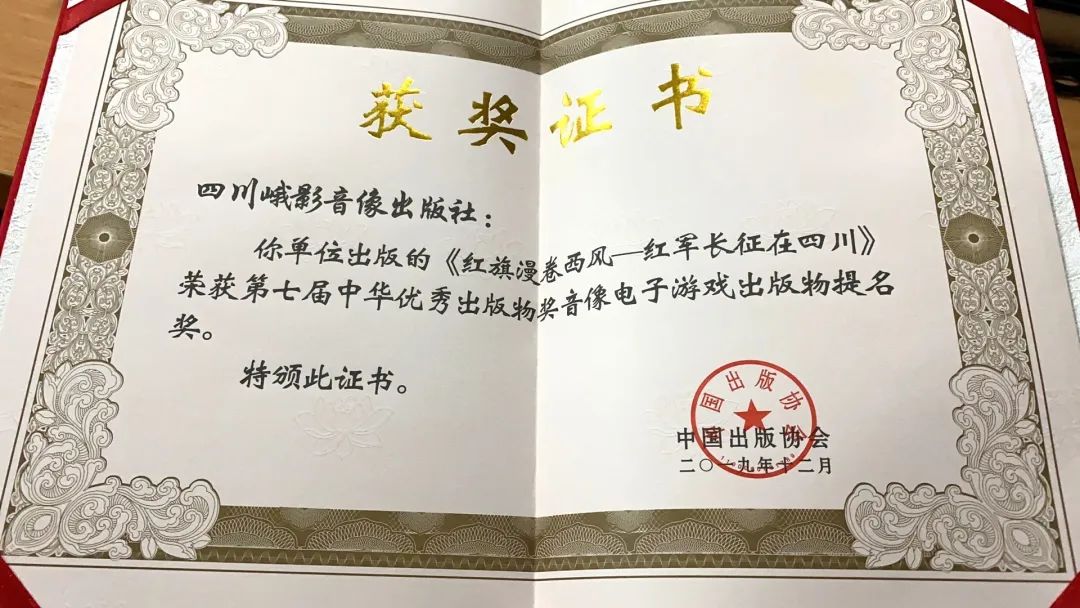 获奖证书
四川峨影音像出版社：
你单位出版的《红旗漫卷西风—红军长征在四川》
荣获第七届中华优秀出版物奖音像电子游戏出版物提名
奖。
特颁此证书。
中国出版协会
中国出版协会
二〇一九年十二月